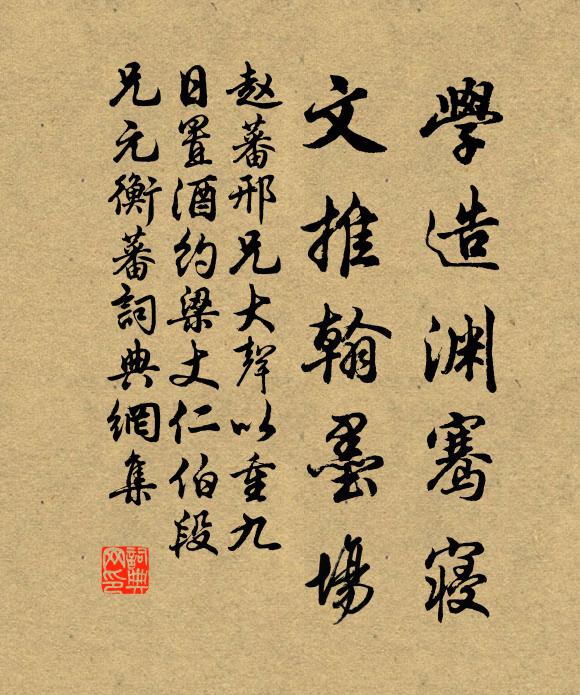 學造渊骞寝
文推翰墨場
赵蕃邢兄大聲以重九
日置酒約梁丈仁伯段
兄元衡蕃詞典網集
詞典網印